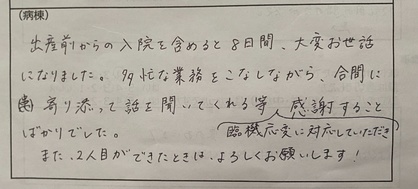 (病棟)
出産前からの入院を含めると8日間、大変お世話
になりました。多忙な業務をこなしながら、合間に
寄り添って話を聞いてくれる等、感謝すること
臨機応変に対応していただき
ばかりでした。
また、2人目ができたときは、よろしくお願いします!